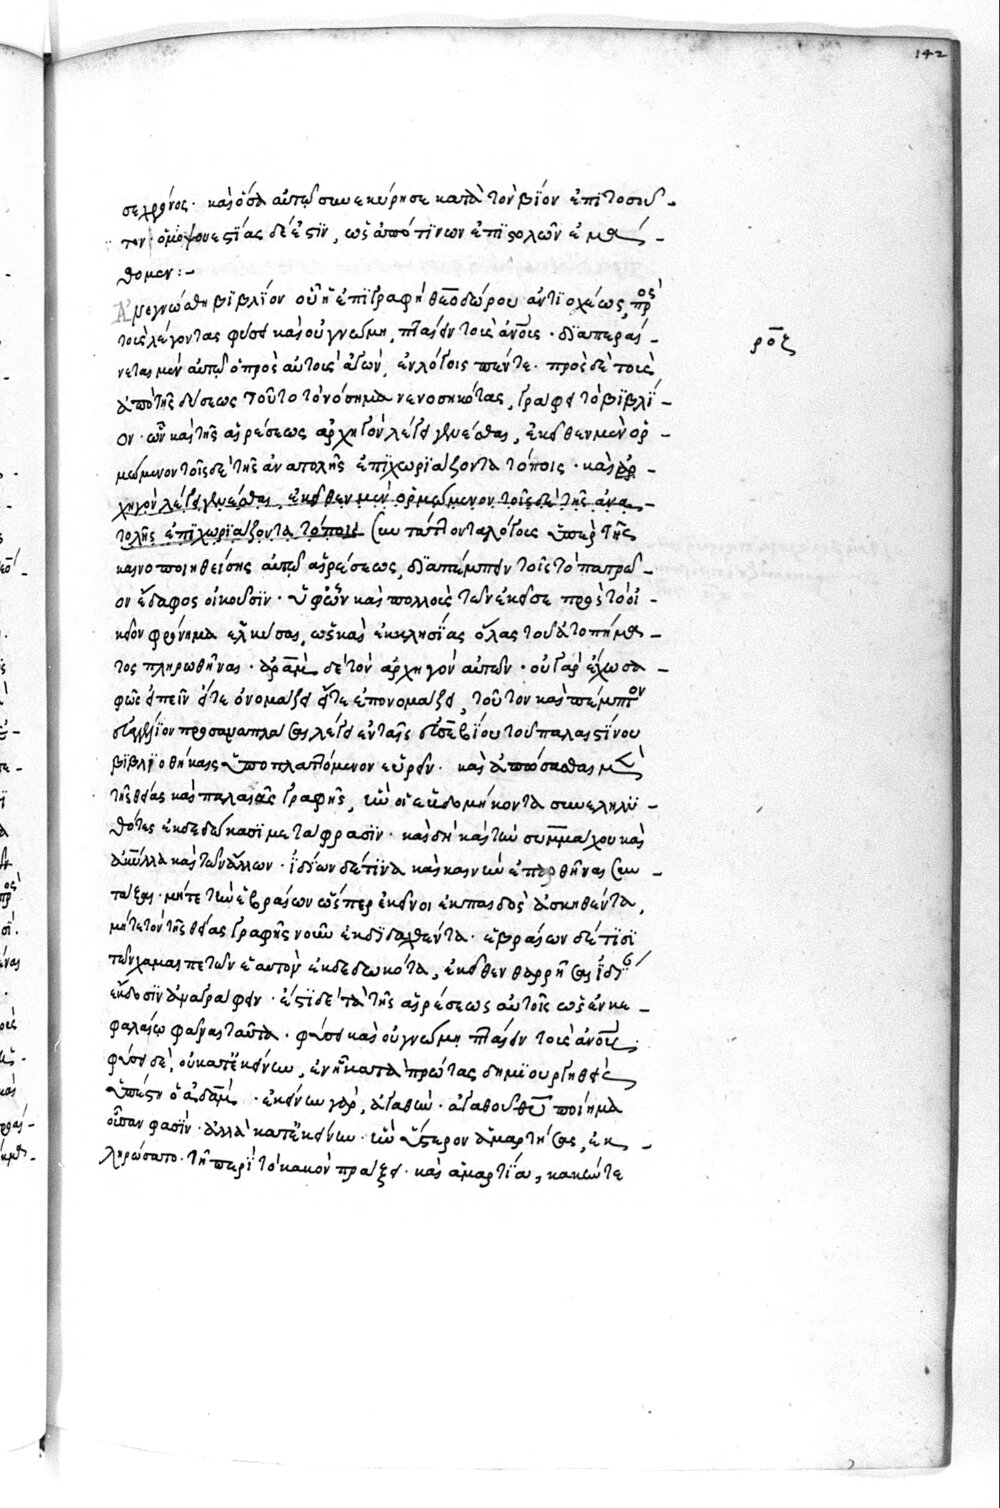 142
σελρήνος· καὶ ὅσα αὐτῷ συνεκύρησε κατὰ τὸν βίον ἐπὶ τοσοῦ -
τον· ὁμοψυε στίας δέ ἐστιν, ὡς ἀπό τινων ἐπιστολῶν ἐμά -
θομεν :-
Ἀνεγνώσθη βιβλίον οὗ ἡ ἐπιγραφὴ θεοδώρου ἀντιοχέως, πρὸς
τοὺς λέγοντας φύσει καὶ οὐ γνώμῃ, πταίειν τοὺς ἀνους· διαπεραί -
ροζ
νεται μὲν αὐτῷ ὁ πρὸς αὐτοὺς ἀγών, ἐν λόγοις πέντε· πρὸς δὲ τοὺς
ἀπὸ τῆς δύσεως τοῦτο τὸ νόσημα νενοσηκότας, γράφει τὸ βιβλί -
ον· ὧν καὶ τῆς αἱρέσεως ἀρχηγὸν λέγει γενέσθαι, ἐκεῖθεν μὲν ὁρ -
μώμενον τοῖς δὲ τῆς ἀνατολῆς ἐπιχωριάζοντα τόποις· καὶ ἀρ -
χηγὸν λέγει γενέσθαι, ἐκεῖθεν μὲν ὁρμώμενον τοῖς δὲ τῆς ἀνα -
τολῆς ἐπιχωριάζοντα τόποις συντάττοντα λόγους ὑπὲρ τῆς
καινοποιηθείσης αὐτῷ αἱρέσεως, διαπέμπειν τοῖς τὸ πατρῷ -
ον ἔδαφος οἰκοῦσιν· ὑφ' ὧν καὶ πολλοὺς τῶν ἐκεῖσε πρὸς τὸ οἰ -
κεῖον φρόνημα ἑλκῦσαι, ὡς καὶ ἐκκλησίας ὅλας τοῦ ἀτοπήμα -
τος πληρωθῆναι· ἀρὰμ δὲ τὸν ἀρχηγὸν αὐτῶν· οὐ γὰρ ἔχω σα -
φῶς εἰπεῖν εἴτε ὀνομάζει εἴτε ἐπονομάζει, τοῦτον καὶ πέμπτον
εὐαγγέλιον προσαναπλάσαι λέγει ἐν ταῖς εὐσεβίου τοῦ παλαιστίνου
βιβλιοθήκαις ὑποπλαττόμενον εὑρεῖν· καὶ ἀπώσασθαι μὲν
τῆς θείας καὶ παλαιᾶς γραφῆς, ἣν οἱ ἑβδομήκοντα συνεληλυ -
θότες ἐκδεδώκασι μετάφρασιν· καὶ δὴ καὶ τὴν συμμάχου καὶ
ἀκύλλα καὶ τῶν ἄλλων· ἰδίων δέ τινα καὶ καινὴν ἐπαρθῆναι συν -
τάξαι· μήτε τὴν ἑβραίων ὥσπερ ἐκεῖνοι ἐκ παιδὸς ἀσκηθέντα,
μήτε τὸν τῆς θείας γραφῆς νοῦν ἐκδιδαχθέντα· ἑβραίων δέ τισι
τῶν χαμαιπετῶν ἑαυτὸν ἐκδεδωκότα, ἐκεῖθεν θαρρῆσαι ἰδίαν
ἔκδοσιν ἀναγράφειν· ἔστι δὲ τὰ τῆς αἱρέσεως αὐτοῖς ὡς ἐν κε -
φαλαίῳ φάναι ταῦτα· φύσει καὶ οὐ γνώμῃ πταίειν τοὺς ἀνους·
φύσιν δὲ, οὐ κατ' ἐκείνην, ἐν ᾗ κατὰ πρώτας δημιουργηθεὶς
ὑπέστη ὁ ἀδάμ· ἐκείνην γάρ, ἀγαθὴν· ἀγαθοῦ θῦ ποίημα
οὖσαν φασὶν· ἀλλὰ κατ' ἐκείνην· ἣν ὕστερον ἁμαρτήσας, ἐκ -
ληρώσατο· τῇ περὶ τὸ κακὸν πράξει· καὶ ἁμαρτίᾳ, κακήν τε